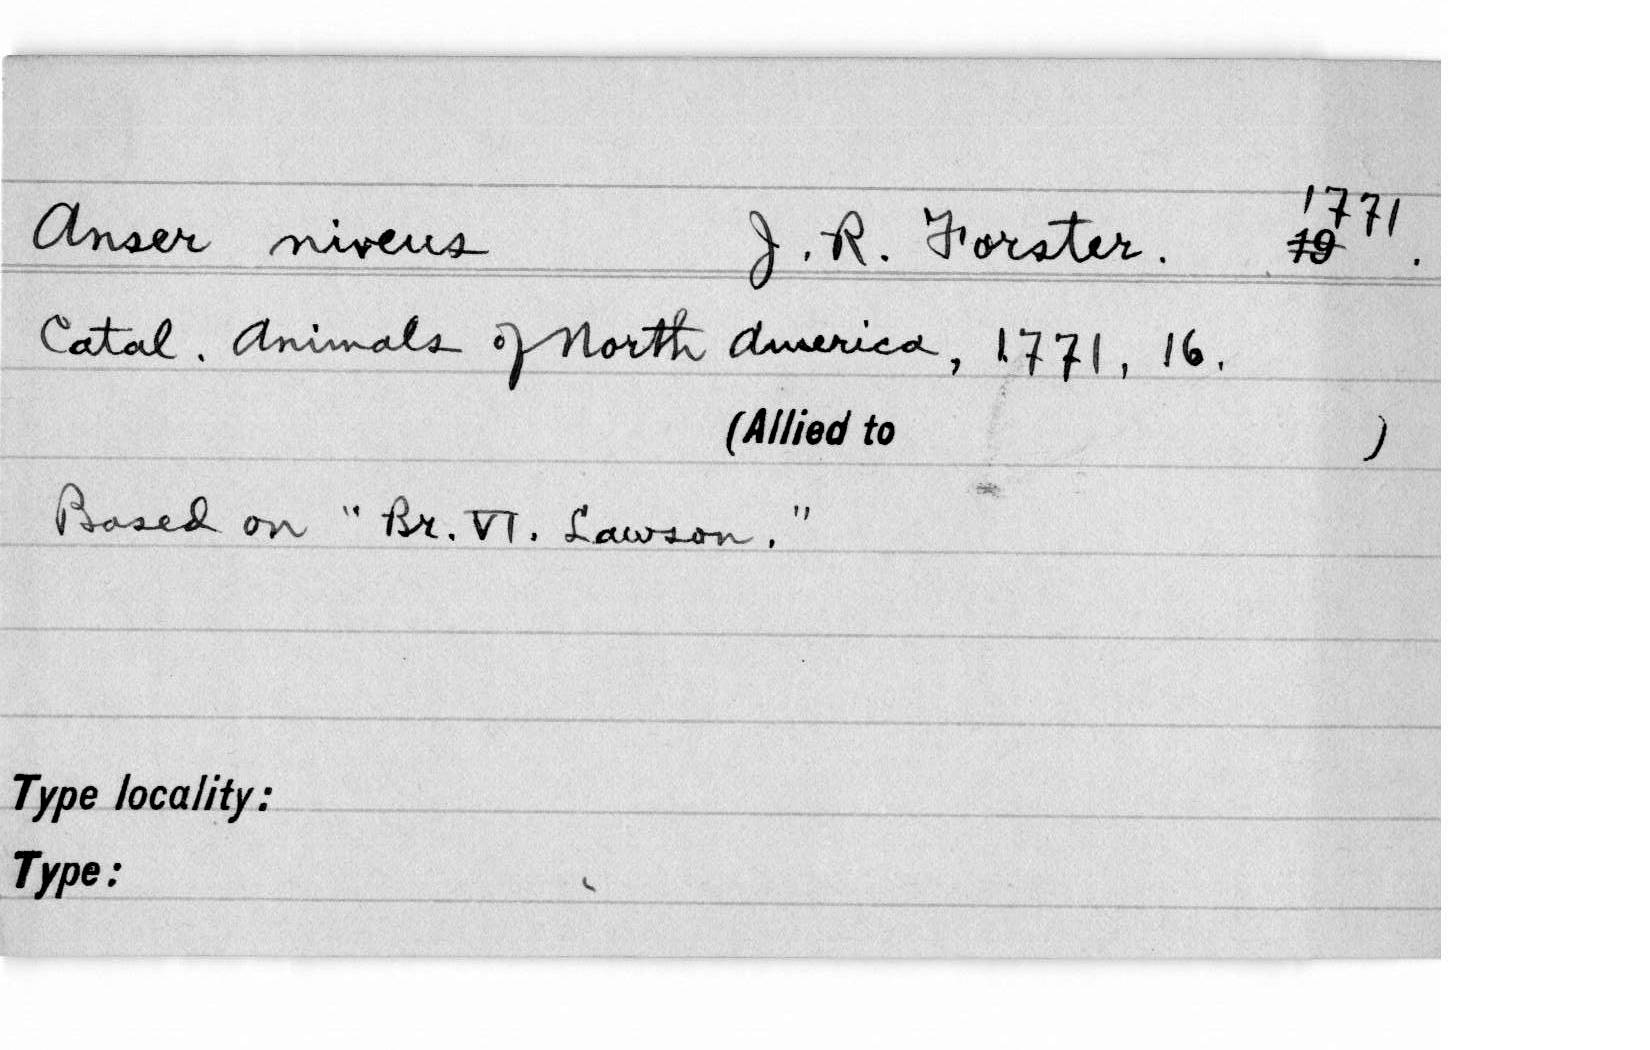 Anser niveus J. R. Forster. 1771.
Catal. Animals of North America, 1771, 16.
(Allied to )
Based on "Br. VI. Lawson."
Type locality:
Type: